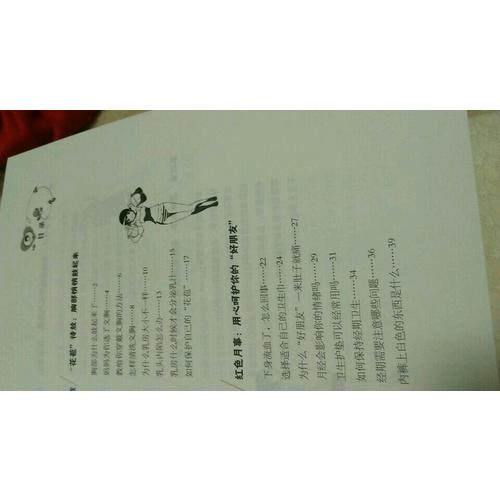 目录
“花苞”待放：胸部悄悄鼓起来
胸部为什么鼓起来了……2
妈妈为你选了文胸……4
教给你穿戴文胸的方法……6
怎样清洗文胸……8
为什么乳房大小不一样……10
乳头内陷怎么办……13
乳房什么时候才会分泌乳汁……15
如何保护自己的“花苞”……17
红色月事：用心呵护你的“好朋友”
下身流血了，怎么回事……22
选择适合自己的卫生巾……24
为什么“好朋友”一来肚子就痛……27
月经会影响你的情绪吗……29
卫生护垫可以经常用吗……31
如何保持经期卫生……34
经期需要注意哪些问题……36
内裤上白色的东西是什么……39